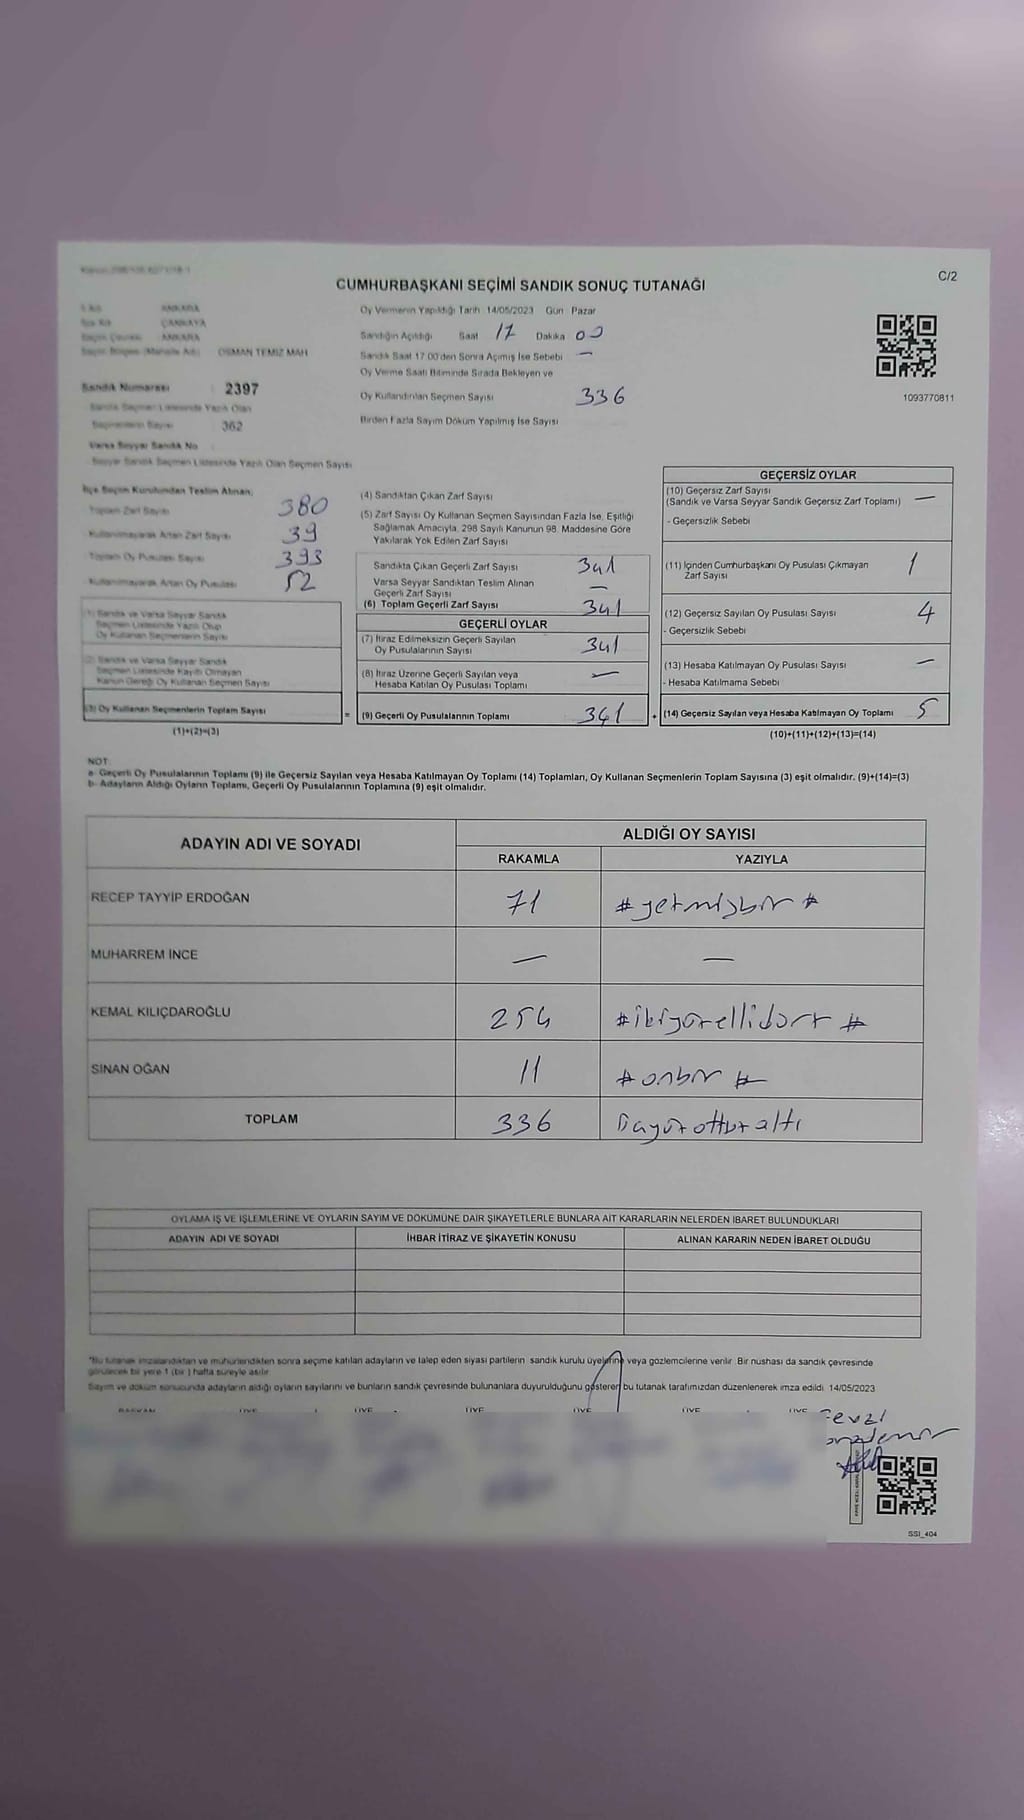 C/2
CUMHURBAŞKANI SEÇİMİ SANDIK SONUÇ TUTANAĞI
ANKARA
ÇANKAYA
ANKARA
OSMAN TEMİZ MAH
Oy Vermenin Yapıldığı Tarih 14/05/2023 Gün Pazar
Sandığın Açıldığı Saat 17 Dakika 00
Sandık Saat 17.00'den Sonra Açımış İse Sebebi —
Oy Verme Saati Bitiminde Sırada Bekleyen ve
Oy Kullandırılan Seçmen Sayısı 336
Birden Fazla Sayım Döküm Yapılmış İse Sayısı
1093770811
Sandık Numarası 2397
Sandık Seçmen Listesinde Yazılı Olan
Seçmenlerin Sayısı 362
Varsa Seyyar Sandık No
Seyyar Sandık Seçmen Listesinde Yazılı Olan Seçmen Sayısı
İlçe Seçim Kurulundan Teslim Alınan;
Toplam Zarf Sayısı 380
Kullanılmayarak Artan Zarf Sayısı 39
Toplam Oy Pusulası Sayısı 393
Kullanılmayarak Artan Oy Pusulası 52
(1) Sandık ve Varsa Seyyar Sandık
Seçmen Listesinde Yazılı Olup
Oy Kullanan Seçmenlerin Sayısı
(2) Sandık ve Varsa Seyyar Sandık
Seçmen Listesinde Kayıtlı Olmayan
Kanun Gereği Oy Kullanan Seçmen Sayısı
(3) Oy Kullanan Seçmenlerin Toplam Sayısı =
(1)+(2)=(3)
(4) Sandıktan Çıkan Zarf Sayısı
(5) Zarf Sayısı Oy Kullanan Seçmen Sayısından Fazla İse, Eşitliği
Sağlamak Amacıyla, 298 Sayılı Kanunun 98. Maddesine Göre
Yakılarak Yok Edilen Zarf Sayısı
Sandıkta Çıkan Geçerli Zarf Sayısı 341
Varsa Seyyar Sandıktan Teslim Alınan
Geçerli Zarf Sayısı —
(6) Toplam Geçerli Zarf Sayısı 341
GEÇERLİ OYLAR
(7) İtiraz Edilmeksizin Geçerli Sayılan
Oy Pusulalarının Sayısı 341
(8) İtiraz Üzerine Geçerli Sayılan veya
Hesaba Katılan Oy Pusulası Toplamı —
(9) Geçerli Oy Pusulalarının Toplamı 341 +
GEÇERSİZ OYLAR
(10) Geçersiz Zarf Sayısı
(Sandık ve Varsa Seyyar Sandık Geçersiz Zarf Toplamı) —
- Geçersizlik Sebebi
(11) İçinden Cumhurbaşkanı Oy Pusulası Çıkmayan
Zarf Sayısı 1
(12) Geçersiz Sayılan Oy Pusulası Sayısı 4
- Geçersizlik Sebebi
(13) Hesaba Katılmayan Oy Pusulası Sayısı —
- Hesaba Katılmama Sebebi
(14) Geçersiz Sayılan veya Hesaba Katılmayan Oy Toplamı 5
(10)+(11)+(12)+(13)=(14)
NOT:
a- Geçerli Oy Pusulalarının Toplamı (9) ile Geçersiz Sayılan veya Hesaba Katılmayan Oy Toplamı (14) Toplamları, Oy Kullanan Seçmenlerin Toplam Sayısına (3) eşit olmalıdır. (9)+(14)=(3)
b- Adayların Aldığı Oyların Toplamı, Geçerli Oy Pusulalarının Toplamına (9) eşit olmalıdır.
ADAYIN ADI VE SOYADI ALDIĞI OY SAYISI
RAKAMLA YAZIYLA
RECEP TAYYİP ERDOĞAN 71 # yetmişbir #
MUHARREM İNCE — —
KEMAL KILIÇDAROĞLU 254 # ikiyüzellidört #
SİNAN OĞAN 11 # onbir #
TOPLAM 336 üçyüzotturaltı
OYLAMA İŞ VE İŞLEMLERİNE VE OYLARIN SAYIM VE DÖKÜMÜNE DAİR ŞİKAYETLERLE BUNLARA AİT KARARLARIN NELERDEN İBARET BULUNDUKLARI
ADAYIN ADI VE SOYADI İHBAR İTİRAZ VE ŞİKAYETİN KONUSU ALINAN KARARIN NEDEN İBARET OLDUĞU
*Bu tutanak imzalandıktan ve mühürlendikten sonra seçime katılan adayların ve talep eden siyasi partilerin sandık kurulu üyelerine veya gözlemcilerine verilir. Bir nüshası da sandık çevresinde
görülecek bir yere 1 (bir ) hafta süreyle asılır.
Sayım ve döküm sonucunda adayların aldığı oyların sayılarını ve bunların sandık çevresinde bulunanlara duyurulduğunu gösteren bu tutanak tarafımızdan düzenlenerek imza edildi. 14/05/2023
BAŞKAN ÜYE ÜYE ÜYE ÜYE ÜYE ÜYE
SSI_404